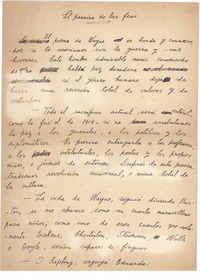 El poema de las
El poema de Wagner es hondo y conmove-
dor si lo asociamos con la guerra y sus
horrores. Este hombre admirable murió convencido
de que no habrá paz duradera
si el género humano
hacer una revisión total de valores y de
costumbres.
— Todo el sacrificio actual será estéril,
como lo fué el de 1914, si no arrebatamos
la paz a los generales, a los políticos y los
diplomáticos. Es preciso entregarla a los profesores,
a los intelectuales, los poetas y los propios
niños, a jóvenes de entonces. Después de esta guerra
tendremos revolución universal, o ruina total de
la cultura.
— La vida de Wagner, siguió diciendo
se me aparece como un cuento maravilloso
para niños, como uno de esos cuentos que sola-
mente Dickens, Chesterton, Stevenson, Wells
o Doyle, serían capaces de forjarnos.
— O Kipling, arguyó Eduardo.